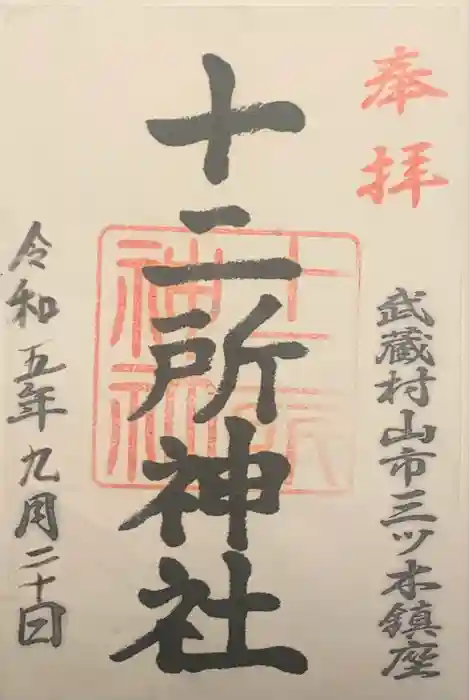 奉拝
武蔵村山市三ツ木鎮座
十二所神社
令和五年九月二十日